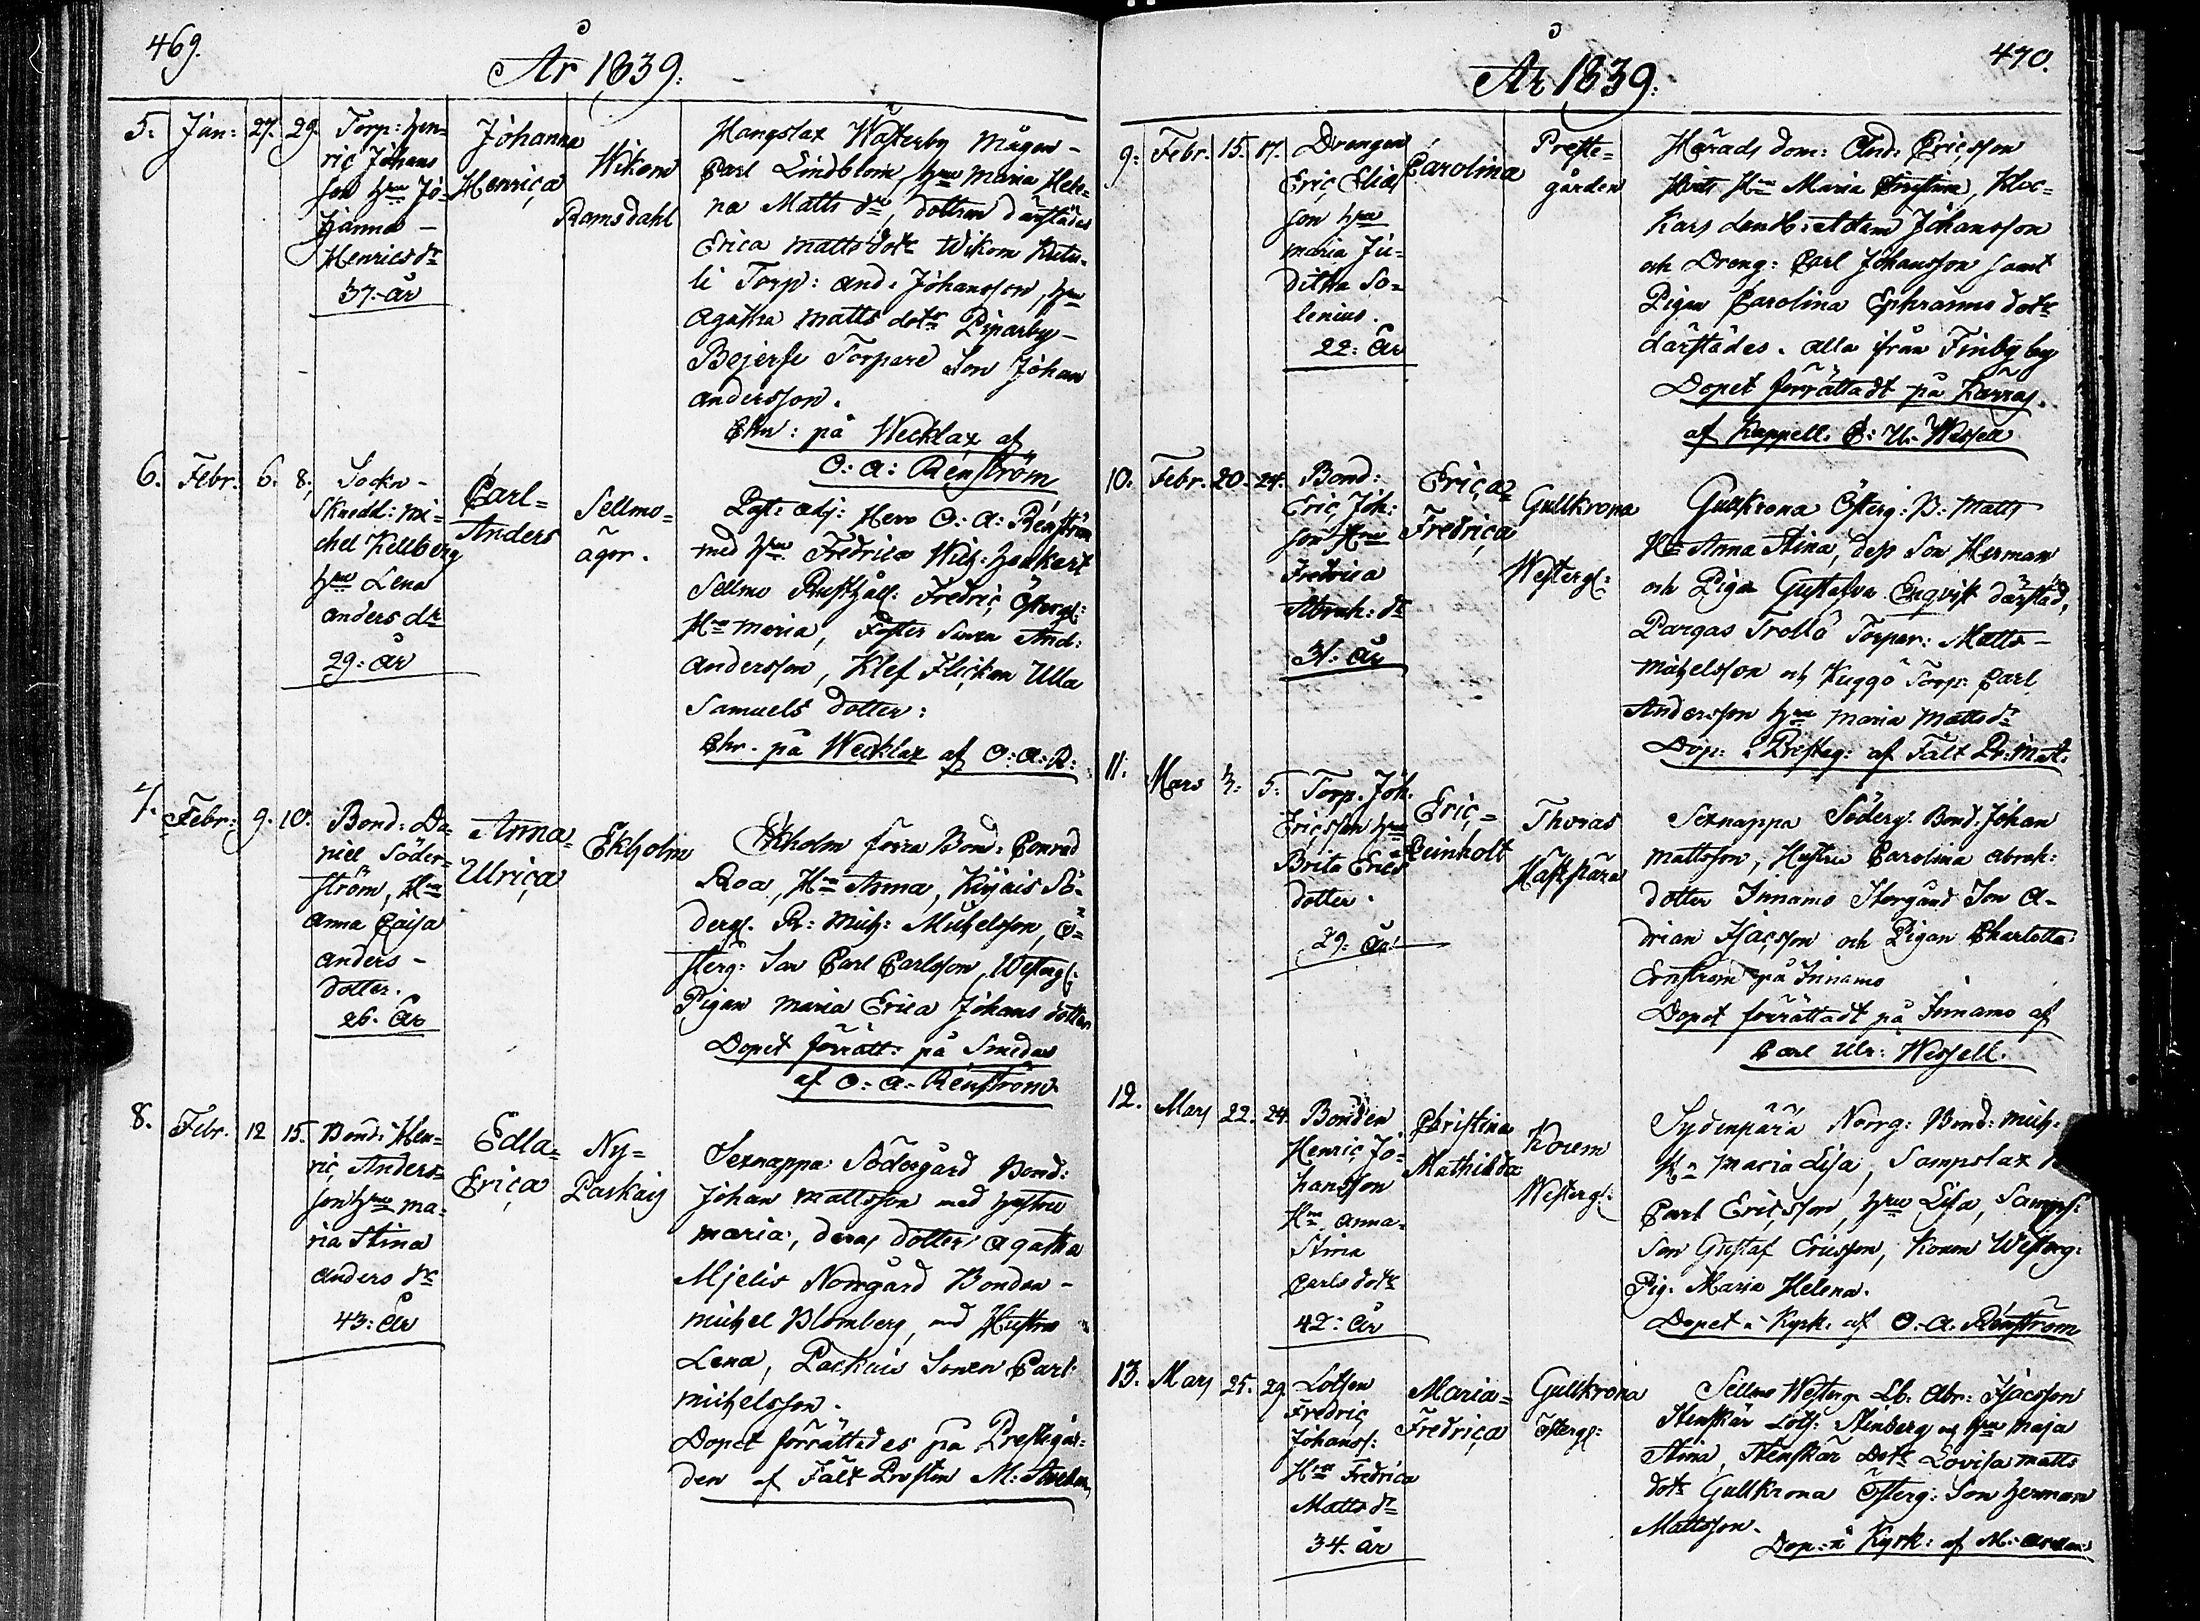 469.
År 1839.
5. Jan: 27. 29.
Torp: Hen-
ric Johans
son hru Jo-
hanna -
Henricsdr
37. år
Johanna
Henrica
Wikom
Ramsdahl
Mågen -
Carl Lindblom, hru Maria Hele-
na Matts dr, dottren därstädes
Erica Matts dotr Wikom
Torp: And: Johansson, hru
Agatha Matts dotr Piparby -
Torpare Son Johan
Andersson.
Chr: på Wecklax af
O: A: Renström
6. Febr. 6. 8.
Sockn -
Skredd: Mi-
chel Kellberg
hru Lena
Anders dr
29: år
Carl-
Anders
Sellmo-
ägor.
Past: adj: Herr O: A: Renström
med hru Fredrica Wilh:
Sellmo Rusthåll: Fredric Östergl:
Hru Maria, Foster Sonen And:
Andersson, Klef Flickan Ulla
Samuels dotter:
Chr. på Wecklax af O: A: R:
7. Febr: 9. 10.
Bond: Da-
niel Söder-
ström, Hru
Anna Caisa
Anders -
dotter.
26. år
Anna-
Ulrica
Ekholm
Ekholm förra Bond: Conrad
Roa, Hru Anna, Kirjais Sö-
dergl. R: Mich: Michelsson, Ö-
sterg: Son Carl Carlsson, Westergl:
Pigan Maria Erica Johans dotter
Dopet förrätt: på Smedas
af O: A: Renström
8. Febr. 12 15.
Bond: Hen-
ric Anders-
son hru Ma-
ria Stina
Anders dr
43: år
Edla-
Erica
Ny-
Paskais
Sexnappa Södergård Bond:
Johan Mattsson med hustru
Maria, deras dotter Agatha
Mielis Norrgård Bonden -
Michel Blomberg, med Hustru
Lena, Packais Sonen Carl
Michelsson.
Dopet förrättades på Prestgår-
den af Fält Prosten M:
470.
År 1839.
9. Febr. 15. 17.
Drengen
Eric Elias
son hru
Maria Ju-
ditha So-
lenius.
22: år
Carolina
Preste-
gården
Härads dom: And: Ericsson
Hru Maria Christina, Kloc-
kars Landb: Adam Johansson
och Dreng: Carl Johansson samt
Pigan Carolina Ephraims dotr
därstädes. alla från Finby by
Dopet förrättadt på Kärras
af Kappell. C: U: Wessell
10. Febr. 20. 24.
Bond:
Eric Joh:
son Hru
Fredrica
Abrah: dr
31. år
Erica
Fredrica
Gullkrona
Westergl:
Gullkrona Österg: B: Matts
Hru Anna Stina, dess Son Herman
och Pigan Gustafva Engvist därstäd,
Pargas Trollö Torpar: Matts -
Michelsson och Kuggö Torp: Carl
Andersson hru Maria Matts dr
Dop: i Presteg: af Fält Pr: M: A.
11. Mars 3. 5.
Torp. Joh.
Ericsson hru
Brita Erics
dotter.
29: år
Eric-
Reinholt
Thoras
Sexnappa Söderg. Bond. Johan
Mattsson, Hustru Carolina Abrah:
dotter Innamo Storgård Son A-
drian Isacsson och Pigan Charlotta
Ernström på Innamo
Dopet förrättadt på Innamo af
Carl Ulr: Wessell.
12. Mars 22. 24.
Bonden
Henric Jo-
hansson
Hru Anna-
Stina
Carls dotr
42: år
Christina
Mathilda
Korem
Westergl:
Sydenpärä Norrg: Bond: Mich:
Hru Maria Lisa, Sampslax
Carl Ericsson, hru Lisa, Samps:
Son Gustaf Ericsson, Korem Westerg:
Pig. Maria Helena.
Dopet i Kyrk: af O. A. Renström
13. Mars 25. 29.
Lotsen
Fredric
Johanss:
Hru Fredrica
Matts dr
34. år
Maria-
Fredrica
Gullkrona
Östergl:
Sellmo Westerg. Lb. Abr: Isacsson
Stenskär Lots: Stenberg och hru Maja
Stina, Stenskär Dotr Lovisa Matts
dotr Gullkrona Österg: Son Herman
Mattsson.
Dop: i Kyrk: af M: